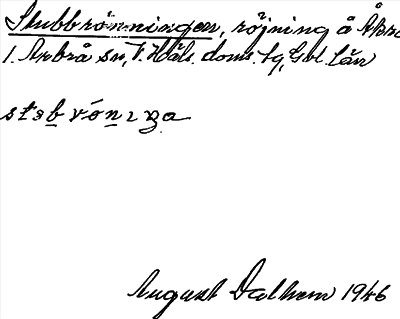 Stubbrönningen, röjning å Åkre
i Arbrå sn, V. Häls. doms. tg, Gvl. län
stebrónıŋa
August Dalhem 1946